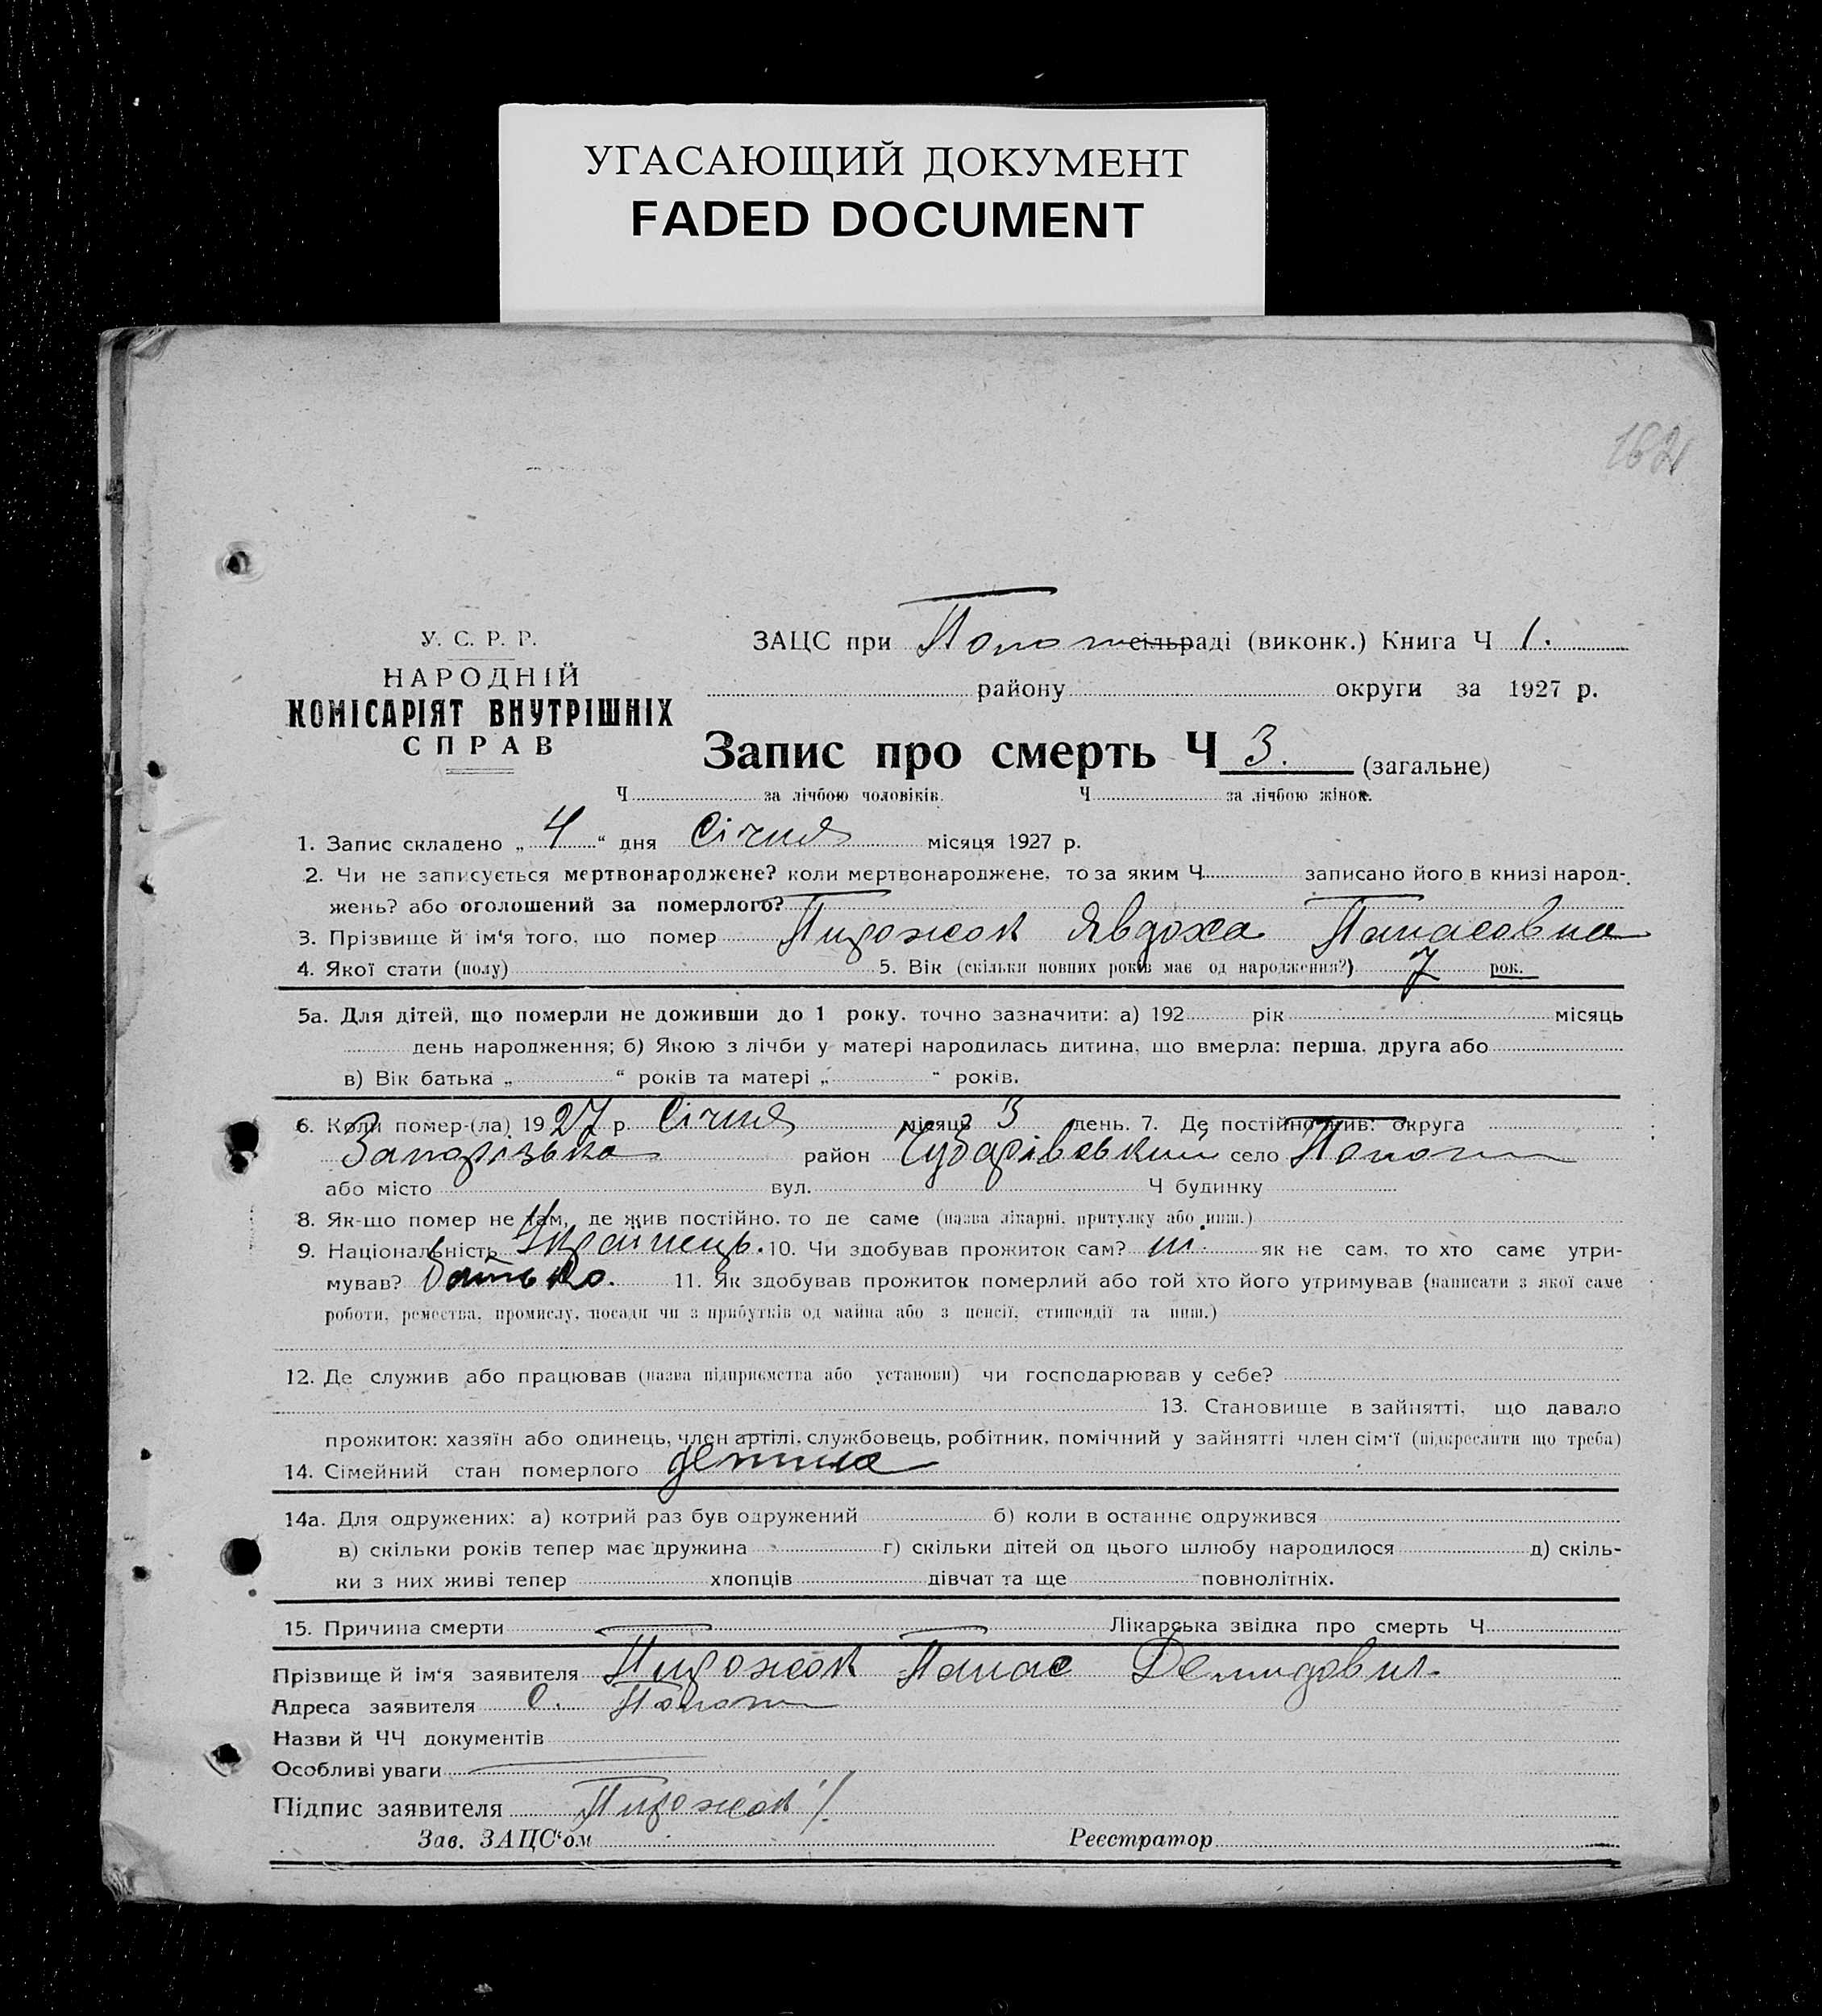 УГАСАЮЩИЙ ДОКУМЕНТ
FADED DOCUMENT
162
У. С. Р. Р.
НАРОДНІЙ
КОМІСАРІЯТ ВНУТРІШНІХ
СПРАВ
ЗАЦС при Попот сільраді (виконк.) Книга Ч 1.
району округи за 1927 р.
Запис про смерть Ч 3. (загальне)
Ч за лічбою чоловіків. Ч за лічбою жінок.
1. Запис складено „ 4 “ дня Січня місяця 1927 р.
2. Чи не записується мертвонароджене? коли мертвонароджене, то за яким Ч записано його в книзі народ-
жень? або оголошений за померлого?
3. Прізвище й ім‘я того, що помер Пирожок Явдоха Панасовна
4. Якої стати (полу) 5. Вік (скільки повних років має од народження?) 7 рок.
5а. Для дітей, що померли не доживши до 1 року, точно зазначити: а) 192 рік місяць
день народження; б) Якою з лічби у матері народилась дитина, що вмерла: перша, друга або
в) Вік батька „ “ років та матері „ “ років.
6. Коли помер-(ла) 1927 р. Січня місяця 3 день. 7. Де постійно жив: округа
Запорізька район Чубарівський село Попот
або місто вул. Ч будинку
8. Як-що помер не там, де жив постійно, то де саме (назва лікарні, притулку або инш.)
9. Національність Українець. 10. Чи здобував прожиток сам? ні. як не сам, то хто саме утри-
мував? батько. 11. Як здобував прожиток померлий або той хто його утримував (написати з якої саме
роботи, ремества, промислу, посади чи з прибутків од майна або з пенсії, стипендії та инш.)
12. Де служив або працював (назва підприємства або установи) чи господарював у себе?
13. Становище в зайнятті, що давало
прожиток: хазяїн або одинець, член артілі, службовець, робітник, помічний у зайнятті член сім‘ї (підкреслити що треба)
14. Сімейний стан померлого детина
14а. Для одружених: а) котрий раз був одружений б) коли в останнє одружився
в) скільки років тепер має дружина г) скільки дітей од цього шлюбу народилося д) скіль-
ки з них живі тепер хлопців дівчат та ще повнолітніх.
15. Причина смерти Лікарська звідка про смерть Ч
Прізвище й ім‘я заявителя Пирожок Панас Демидович
Адреса заявителя с. Попот
Назви й ЧЧ документів
Особливі уваги
Підпис заявителя Пирожок
Зав. ЗАЦС‘ом Реєстратор